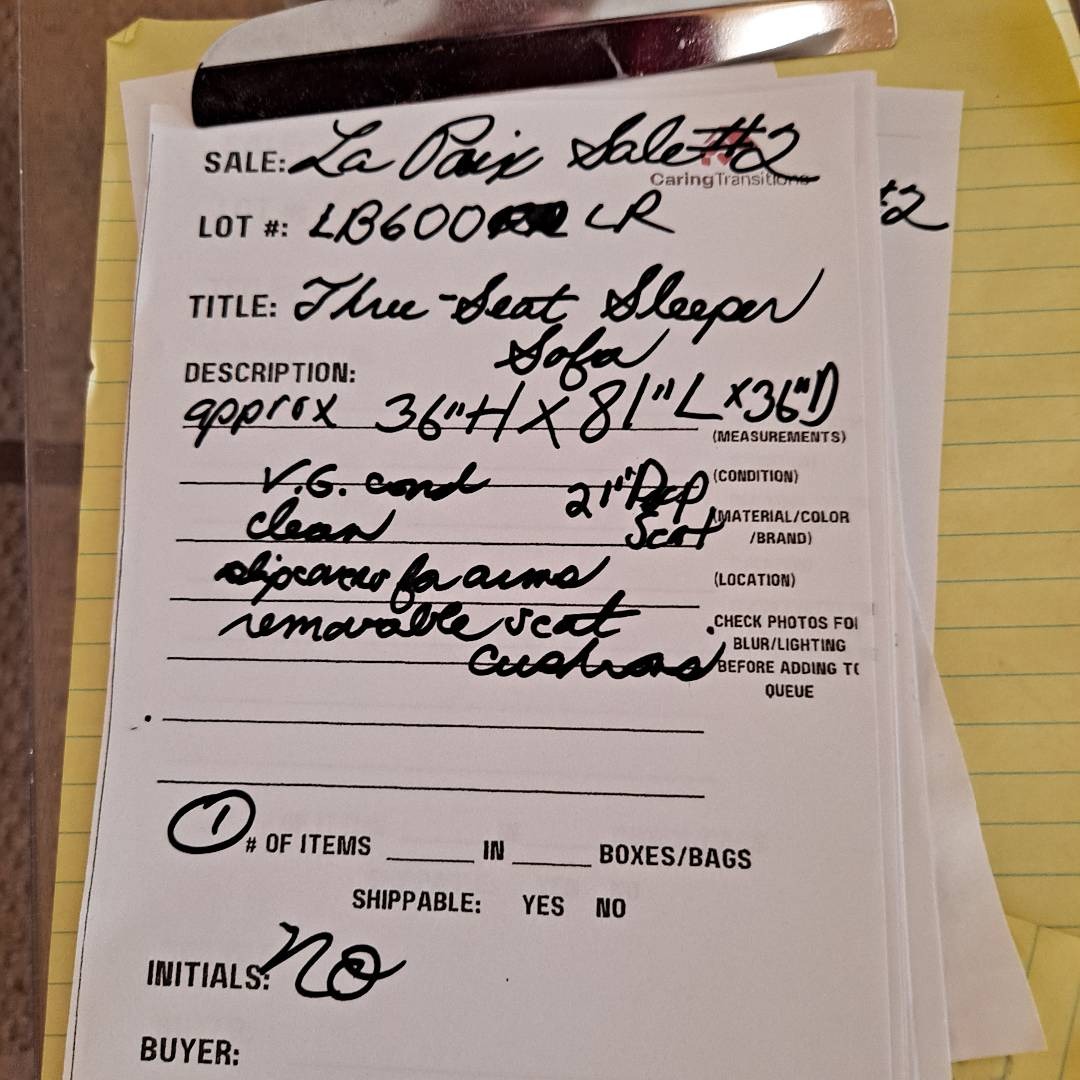 SALE: La Paix Sale #2
CaringTransitions
LOT #: LB600 LR
#2
TITLE: Three-Seat Sleeper
Sofa
DESCRIPTION:
approx 36"H X 81"L x 36"D
(MEASUREMENTS)
V.G. cond 21" Deep (CONDITION)
clean Seat (MATERIAL/COLOR
/BRAND)
slipcovers for arms (LOCATION)
removable seat CHECK PHOTOS FO
cushions BLUR/LIGHTING
BEFORE ADDING TO
QUEUE
1 # OF ITEMS ____ IN ____ BOXES/BAGS
SHIPPABLE: YES NO
INITIALS: no
BUYER: